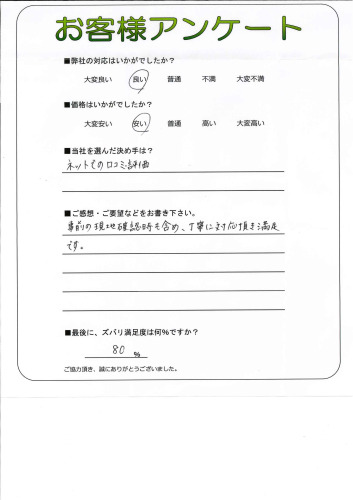 お客様アンケート
■弊社の対応はいかがでしたか?
大変良い 良い 普通 不満 大変不満
■価格はいかがでしたか?
大変安い 安い 普通 高い 大変高い
■当社を選んだ決め手は?
ネットでの口コミ評価
■ご感想・ご要望などをお書き下さい。
事前の現地確認時も含め、丁寧に対応頂き満足
です。
■最後に、ズバリ満足度は何%ですか?
80 %
ご協力頂き、誠にありがとうございました。